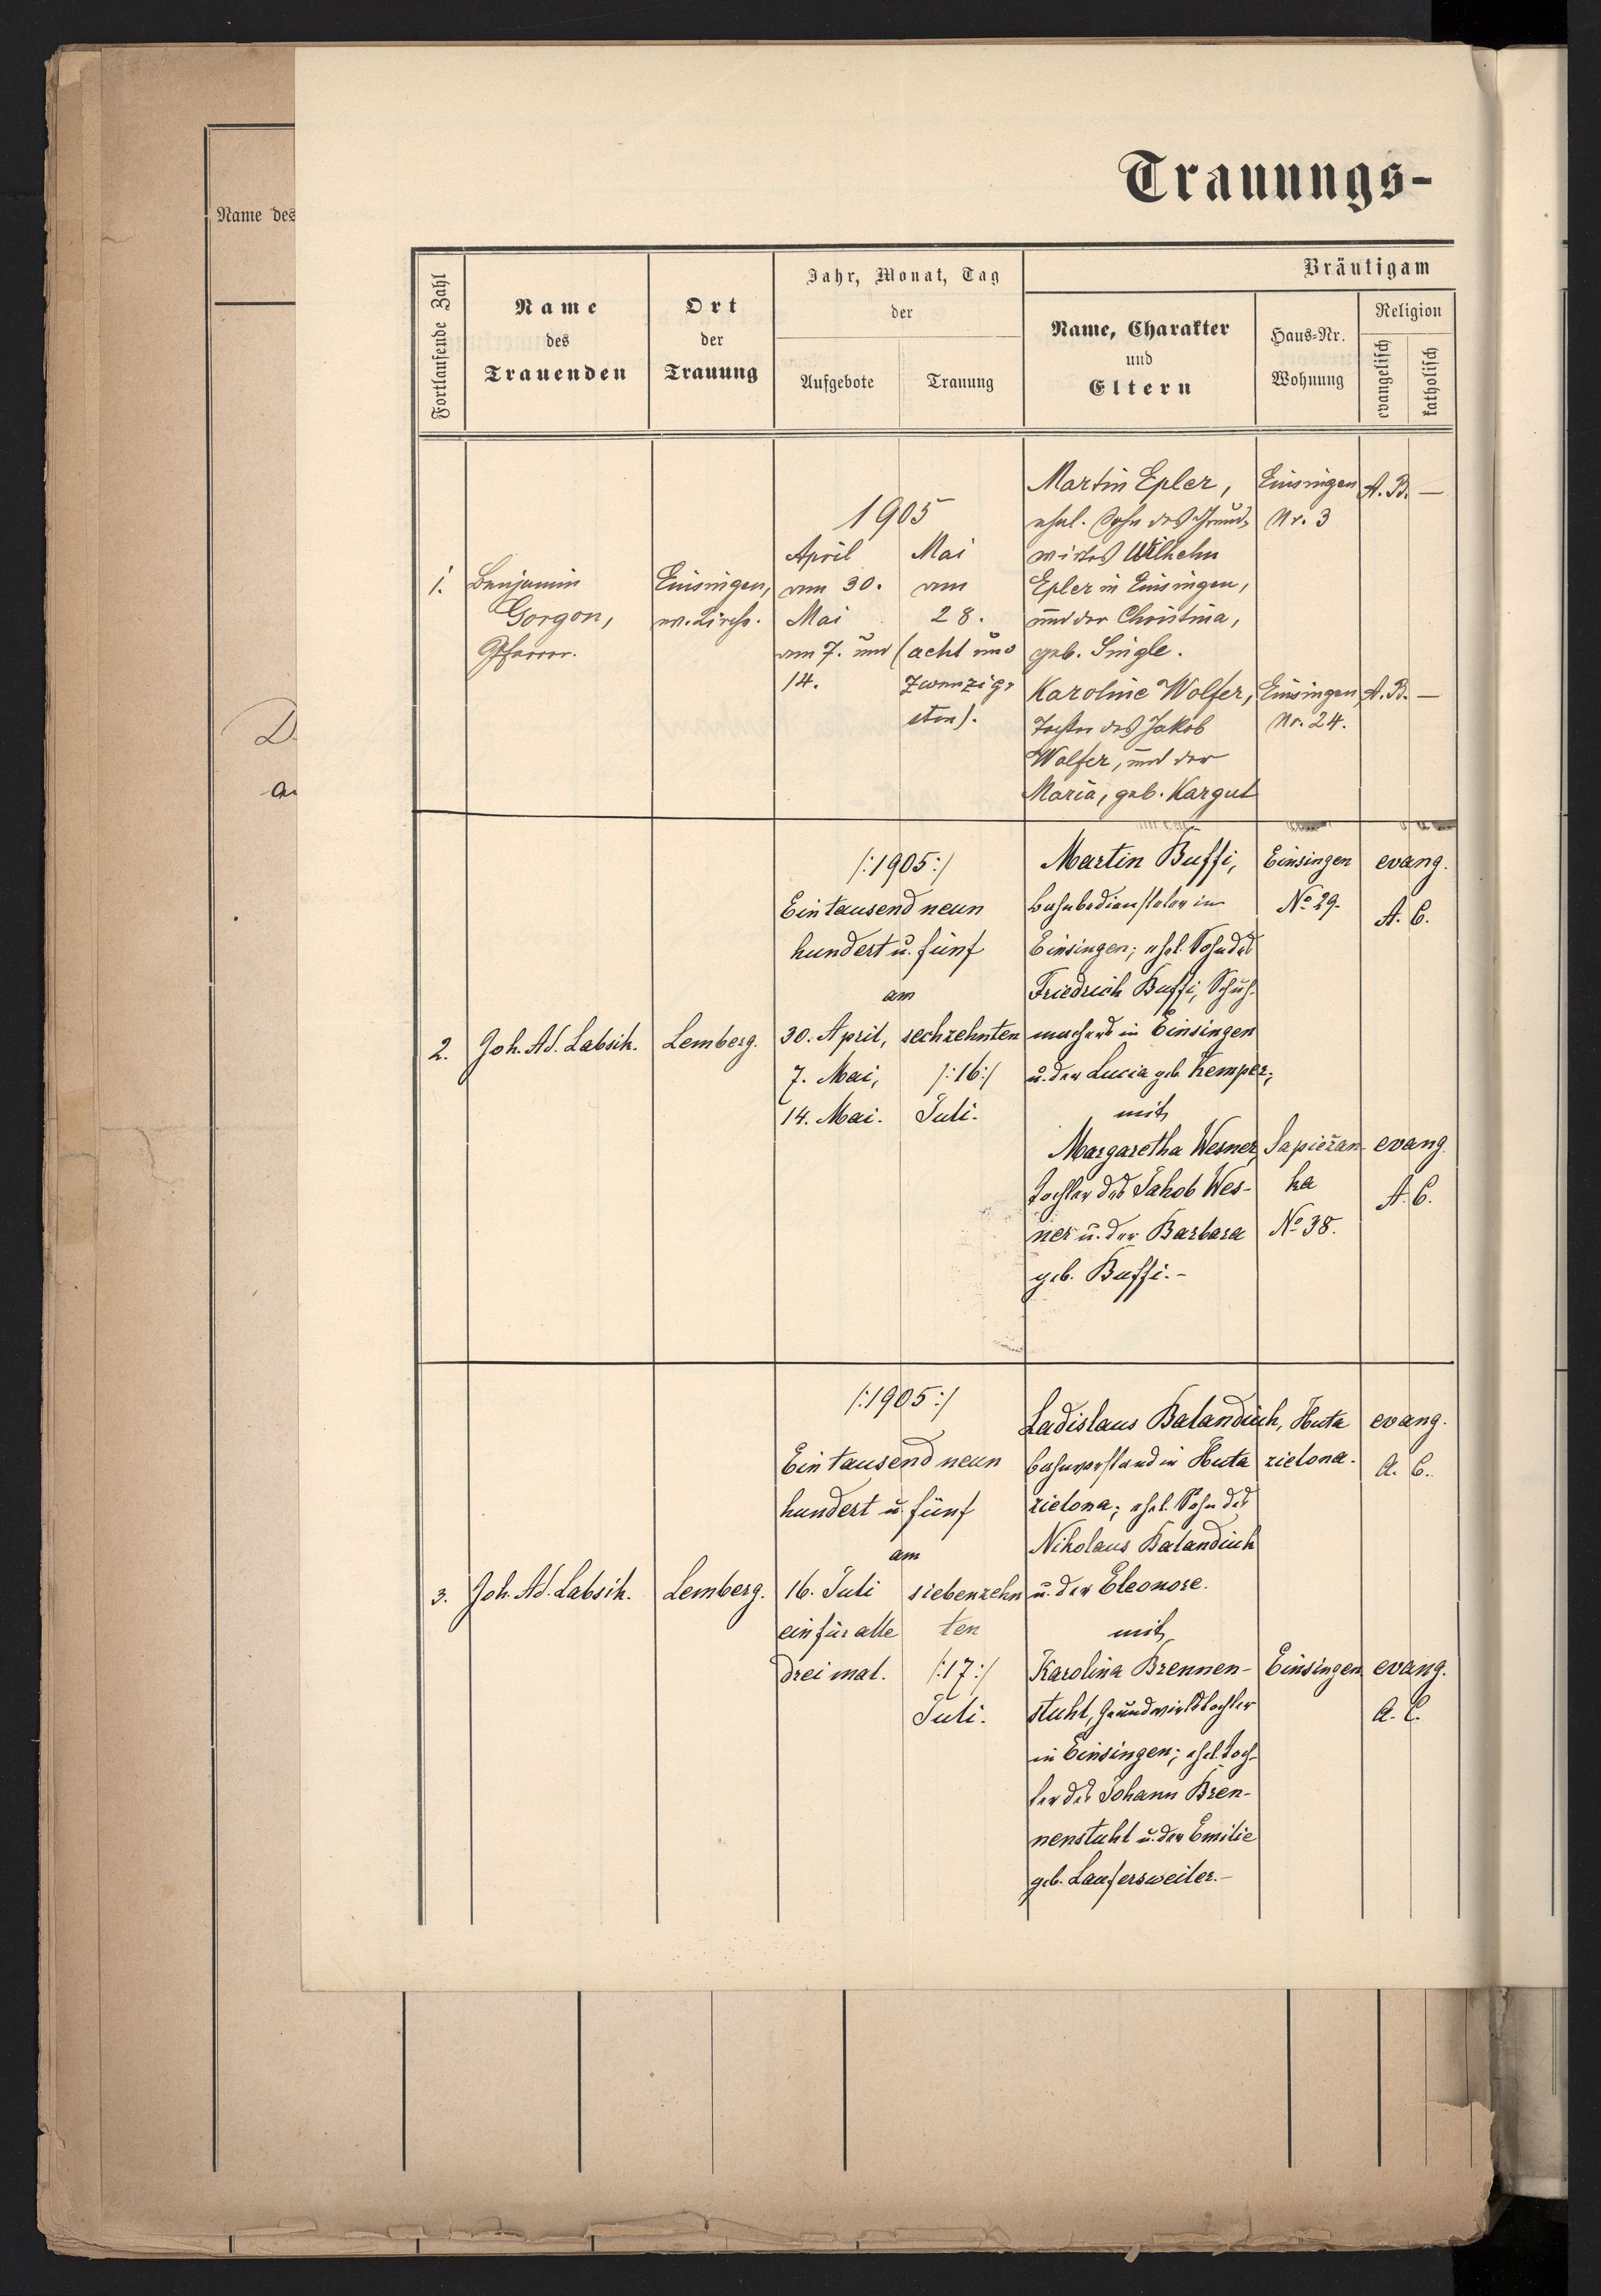 Name des
D.
Trauungs-
Fortlaufende Zahl
Name
des
Trauenden
Ort
der
Trauung
Jahr, Monat, Tag
der
Aufgebote
Trauung
Bräutigam
Name, Charakter
und
Eltern
Haus-Nr.
Wohnung
Religion
evangelisch
katholisch
1.
Benjamin
Gorgon,
Pfarrer.
Einsingen,
ev. Kirche.
1905
April
am 30.
Mai
am 7. und
14.
Mai
am
28.
(acht und
zwanzig-
sten).
Martin Epler,
ehel. Sohn des Grund-
wirtes Wilhelm
Epler in Einsingen,
und der Christina,
geb. Single.
Einsingen
Nr. 3
A. B. —
Karoline Wolfer,
Tochter des Jakob
Wolfer, und der
Maria, geb. Kargut
Einsingen
Nr. 24.
A. B. —
2.
Joh. Ad. Labsik.
Lemberg.
/:1905:/
Ein tausend neun
hundert u. fünf
am
30. April,
7. Mai,
14. Mai.
sechzehnten
/:16:/
Juli.
Martin Buffi,
Bahnbediensteter in
Einsingen; ehel. Sohn des
Friedrich Buffi, Schuh-
machers in Einsingen
u. der Lucia geb. Kemper;
mit
Einsingen
No 29.
evang.
A. C.
Margaretha Wesner,
Tochter des Jakob Wes-
ner u. der Barbara
geb. Buffi.-
Sapieżan-
ka
No 38.
evang.
A. C.
3.
Joh. Ad. Labsik.
Lemberg.
/:1905:/
Ein tausend neun
hundert u. fünf
am
16. Juli
ein für alle
drei mal.
siebenzehn
ten
/:17:/
Juli.
Ladislaus Balandiuk,
Bahnvorstand in Huta
zielona; ehel. Sohn des
Nikolaus Balandiuk
u. der Eleonore.
mit
Huta
zielona.
evang.
A. C.
Karolina Brennen-
stuhl, Grundwirtstochter
in Einsingen; ehel. Toch-
ter des Johann Bren-
nenstuhl u. der Emilie
geb. Laufersweiler.-
Einsingen.
evang.
A. C.